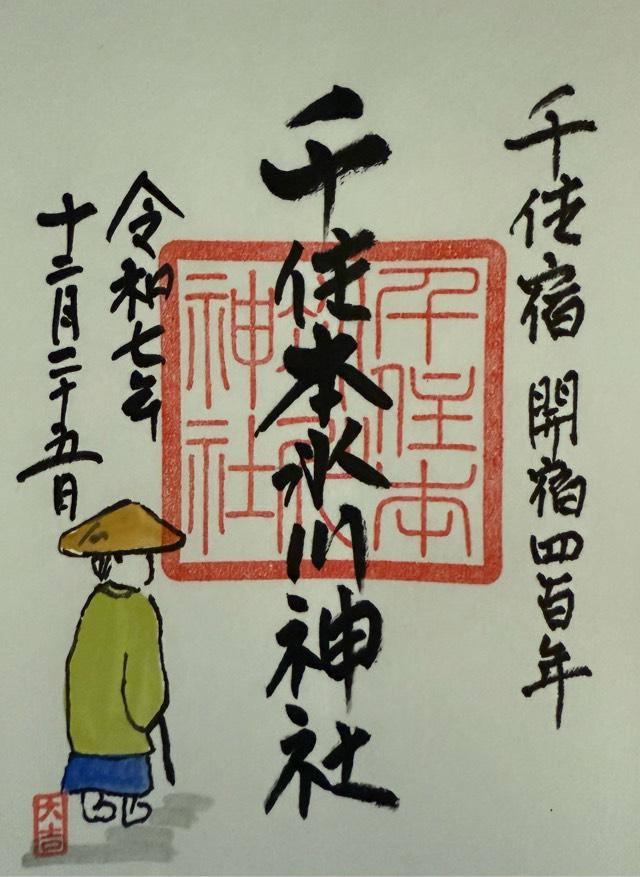 千住宿 開宿四百年
千住本氷川神社
千住本
氷川
神社
令和七年
十二月二十五日
大吉